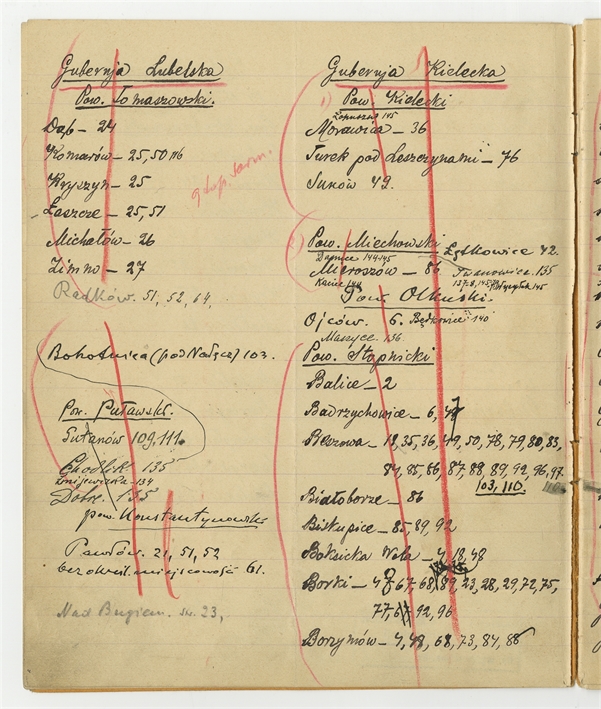 Gubernja Lubelska
Pow. Tomaszowski.
Dąb – 24
Komarów – 25, 50, 116
Kryszyn – 25
Łaszcze – 25, 51
Michałów – 26
Zimno – 27
Radków. 51, 52, 64,
Bohotnica (pod Nałęcz) 103.
Pow. Puławski.
Lutanów 109, 111.
Chodlik 135
Żmijowiska – 134
Dobre. 135
pow. Konstantynowski
Pawłów. 21, 51, 52
bez określ. miejscowość 61.
Nad Bugiem. 23,
Gubernja Kielecka
1) Pow. Kielecki
Łopuszno 145
Morawica – 36
Turek pod Leszczynami – 76
Suków 49.
2) Pow. Miechowski
Łętkowice 42.
144-145
Mieroszów – 86
Iwanowice. 135
144
145
Pow. Olkuski.
Ojców. 6.
140
Maszyce. 136
Pow. Stopnicki
Balice – 2
Badrzychowice – 6, 47
Beszowa – 18, 35, 36, 49, 50, 78, 79, 80, 83,
84, 85, 86, 87, 88, 89, 92, 96, 97.
103, 110.
Białoborze – 86
Biskupice – 85, 89, 92
Boksicka Wola – 4, 18, 48
Borki – 67, 68, 89, 23, 28, 29, 72, 75,
77, 92, 96
Borzymów – 4, 48, 68, 73, 84, 88